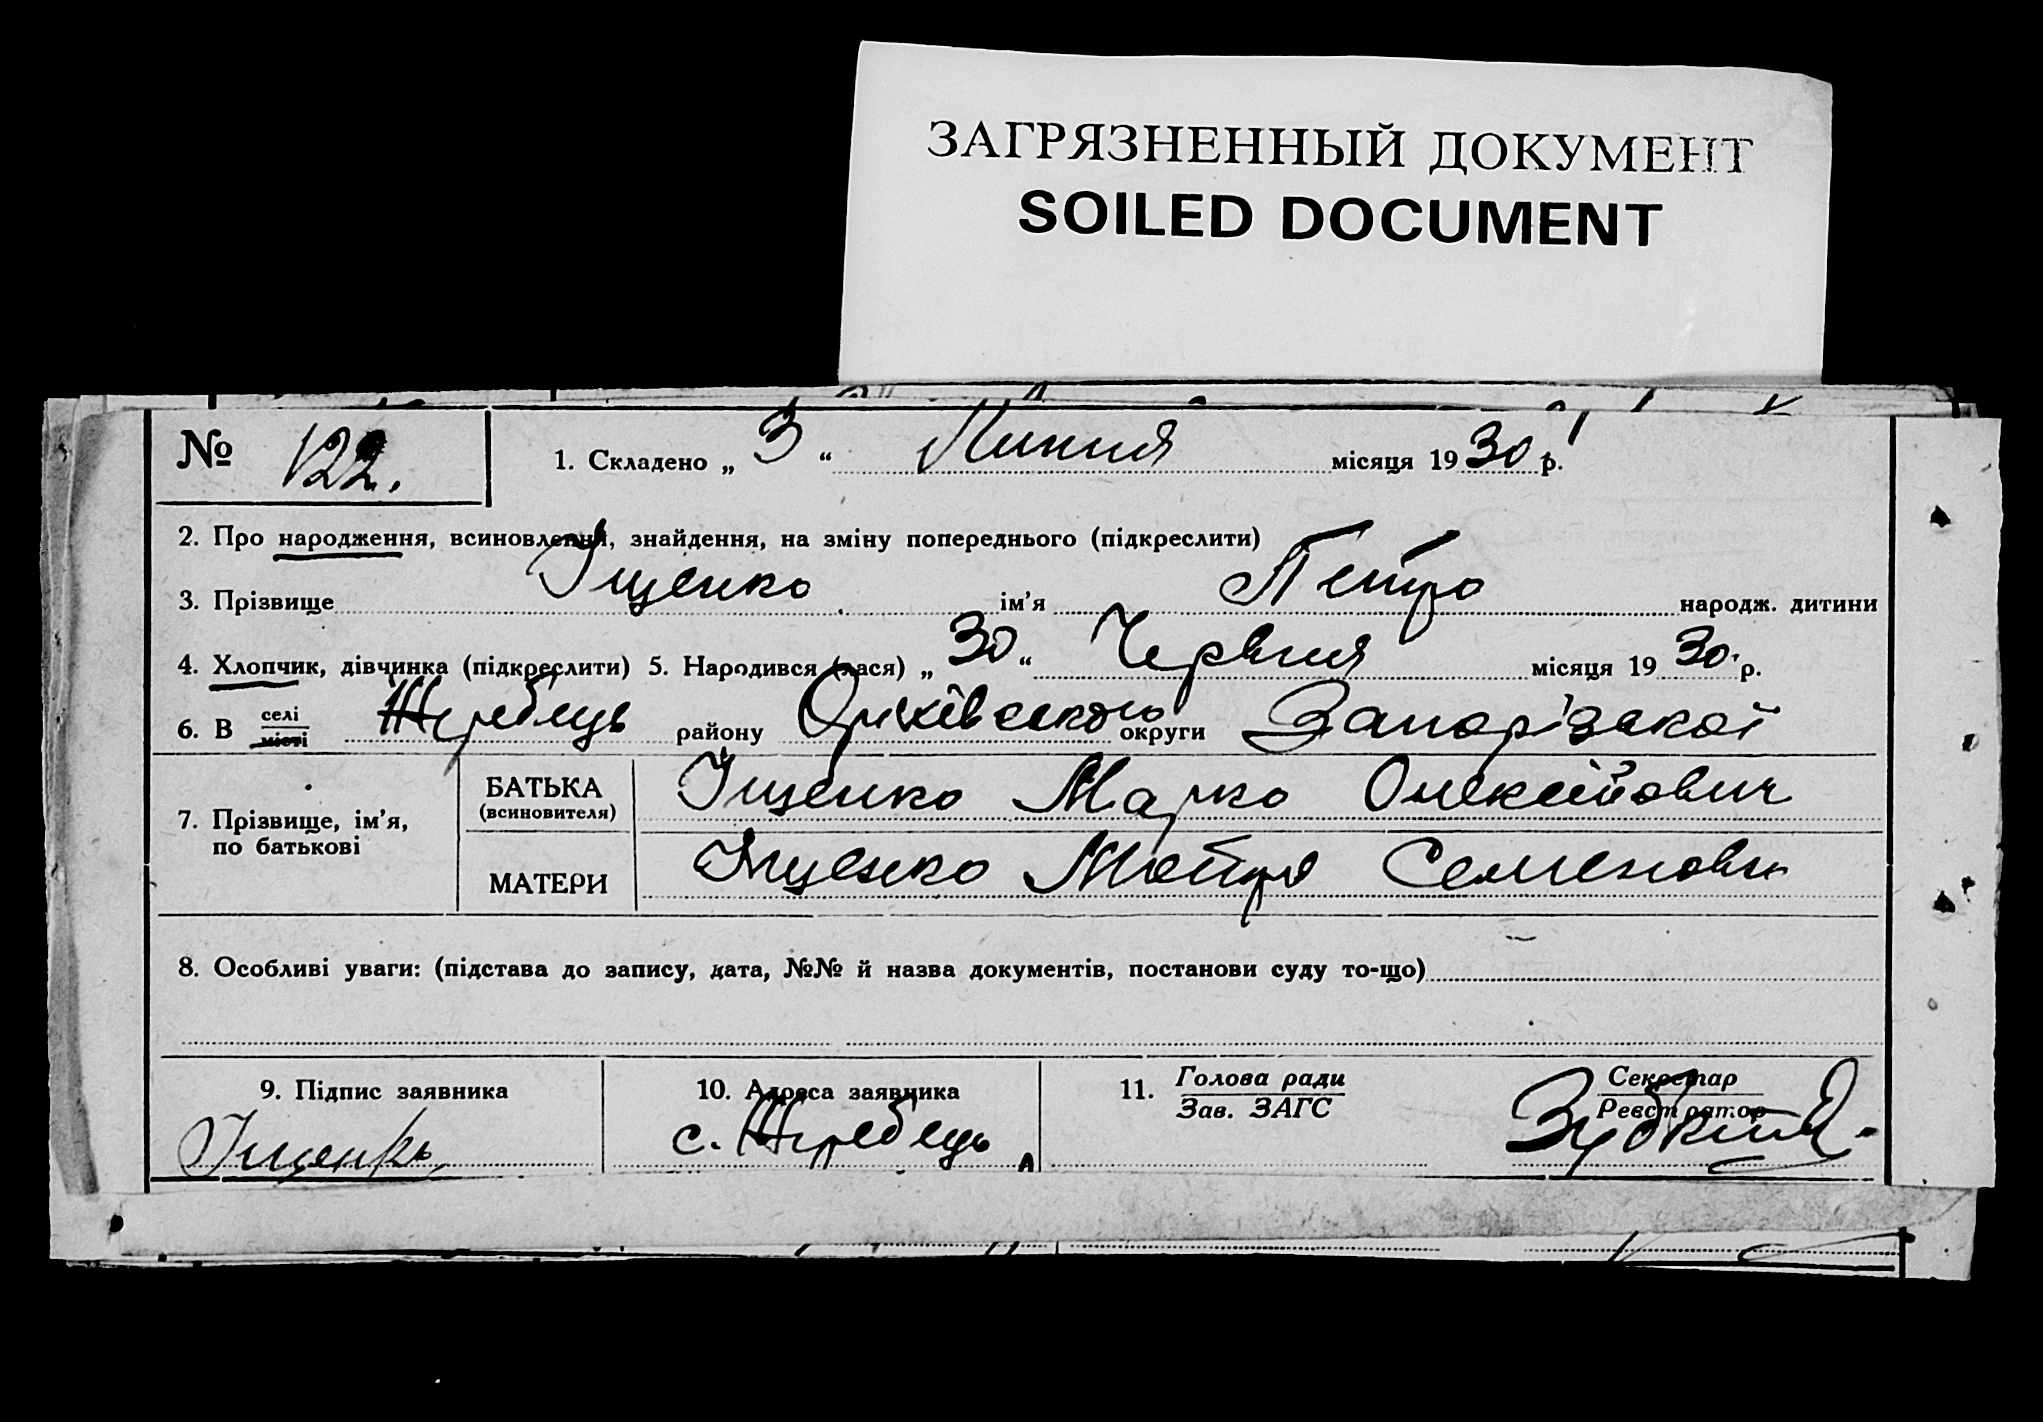 ЗАГРЯЗНЕННЫЙ ДОКУМЕНТ
SOILED DOCUMENT
№ 122. 1. Складено „ 3 “ Липня місяця 1930 р.
2. Про народження, всиновлення, знайдення, на зміну попереднього (підкреслити)
3. Прізвище Іщенко ім’я Петро народж. дитини
4. Хлопчик, дівчинка (підкреслити) 5. Народився (лася) „ 30 “ Червня місяця 1930 р.
6. В селі місті Жеребець району Оріхівського округи Запорізької
7. Прізвище, ім’я, по батькові
БАТЬКА (всиновителя) Іщенко Марко Олексійович
МАТЕРИ Іщенко Мотря Семеновн
8. Особливі уваги: (підстава до запису, дата, №№ й назва документів, постанови суду то-що)
9. Підпис заявника 10. Адреса заявника 11. Голова ради Зав. ЗАГС Секретар Реєстратор
Іщенко с. Жеребець